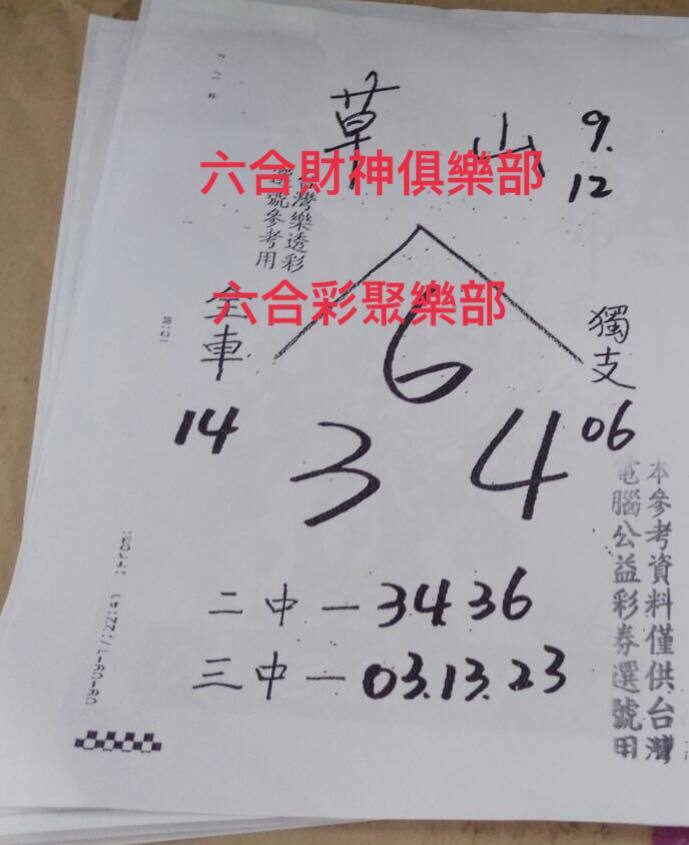 草山 9.
12
六合財神俱樂部
台灣樂透彩
選號參考用
六合彩聚樂部
全車
14
6
3 4
獨支
06
二中－34.36
三中－03.13.23
本參考資料僅供台灣
電腦公益彩券選號用